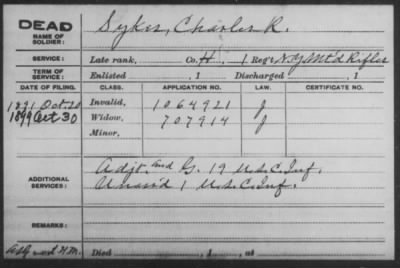 DEAD
NAME OF SOLDIER:
Sykes, Charles R.
SERVICE:
Late rank, Co. H, 1 Reg't N.Y. Mt'd Rifles
TERM OF SERVICE:
Enlisted , 1 Discharged , 1
DATE OF FILING. CLASS. APPLICATION NO. LAW. CERTIFICATE NO.
1891 Oct. 20 Invalid, 1064921 J
1899 Oct 30 Widow, 707914 J
Minor,
ADDITIONAL SERVICES:
Adjt. and G. 19 U.S.C. Inf.
Unass'd 1 U.S.C. Inf.
REMARKS:
Died , 1 , at